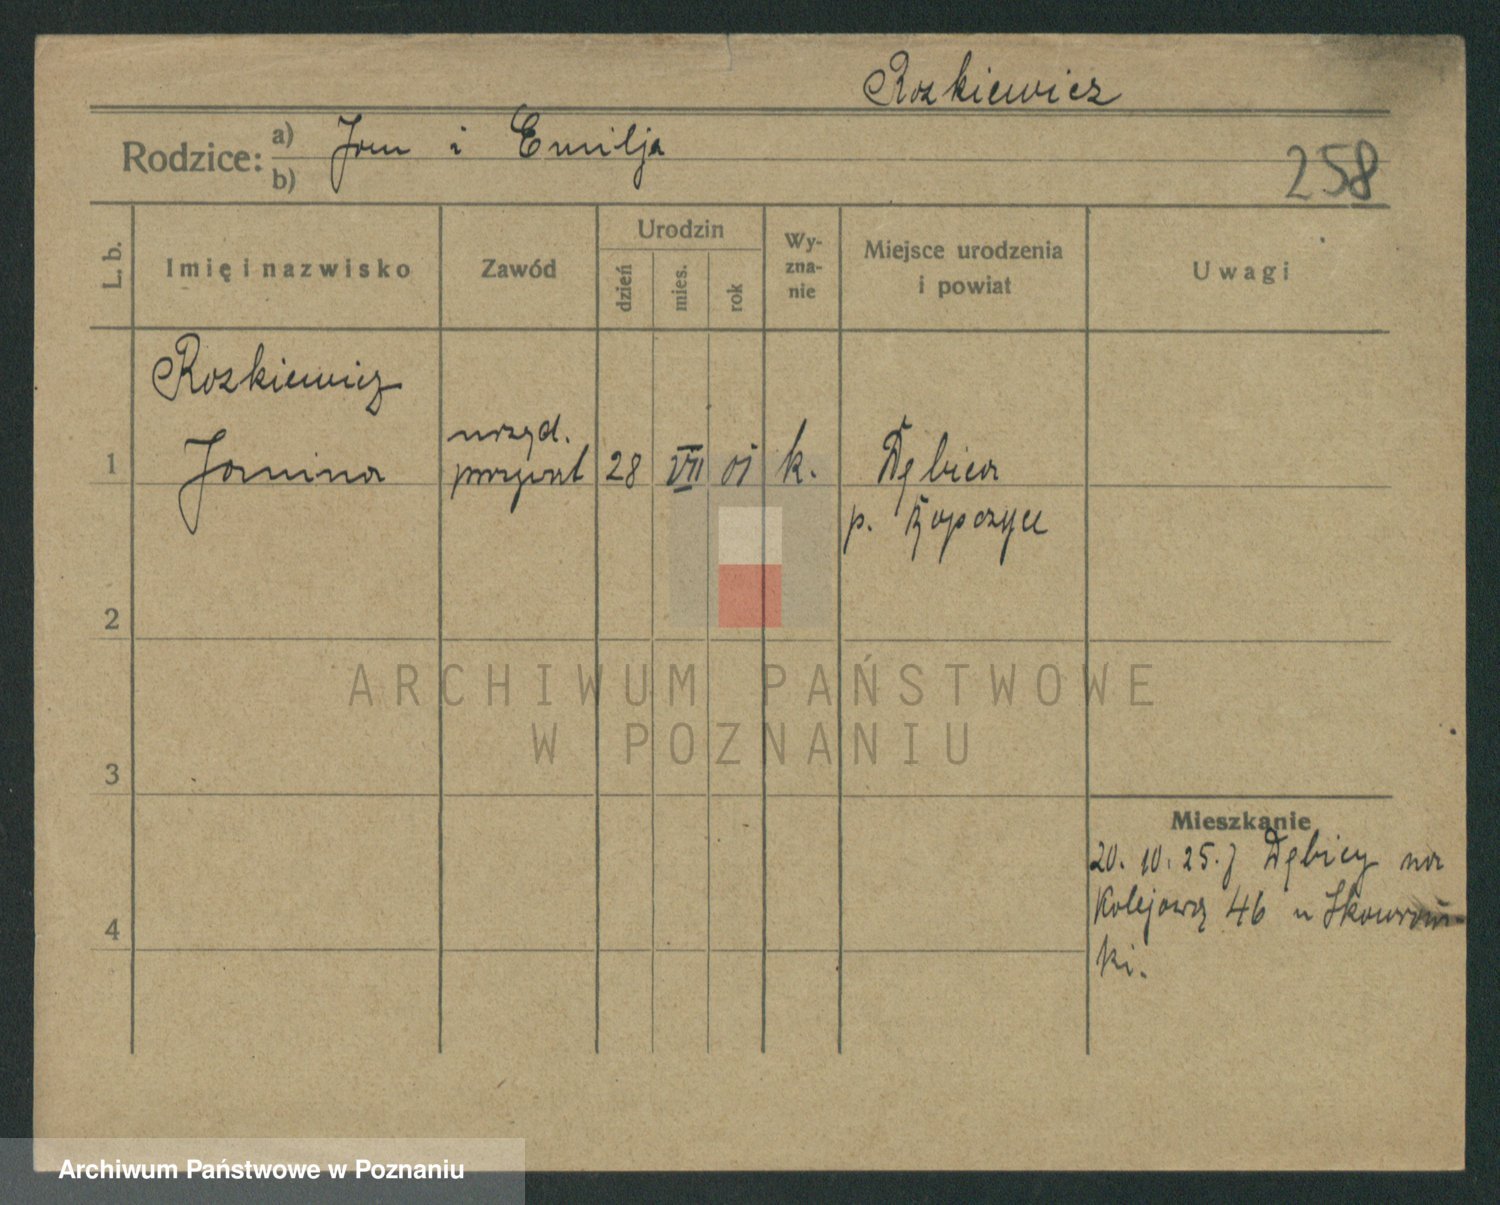 Rozkiewicz
Rodzice: a) Jan i Emilja
b)
258
L. b.
Imię i nazwisko
Zawód
Urodzin
dzień
mies.
rok
Wy-
zna-
nie
Miejsce urodzenia
i powiat
Uwagi
Rozkiewicz
urzęd.
1 Janina prywat 28 VII 01 k. Dębica
p. Ropczyce
2
3
4
Mieszkanie
20. 10. 25. z Dębicy na
Kolejową 46 u Skowroń-
ki.
ARCHIWUM PAŃSTWOWE
W POZNANIU
Archiwum Państwowe w Poznaniu